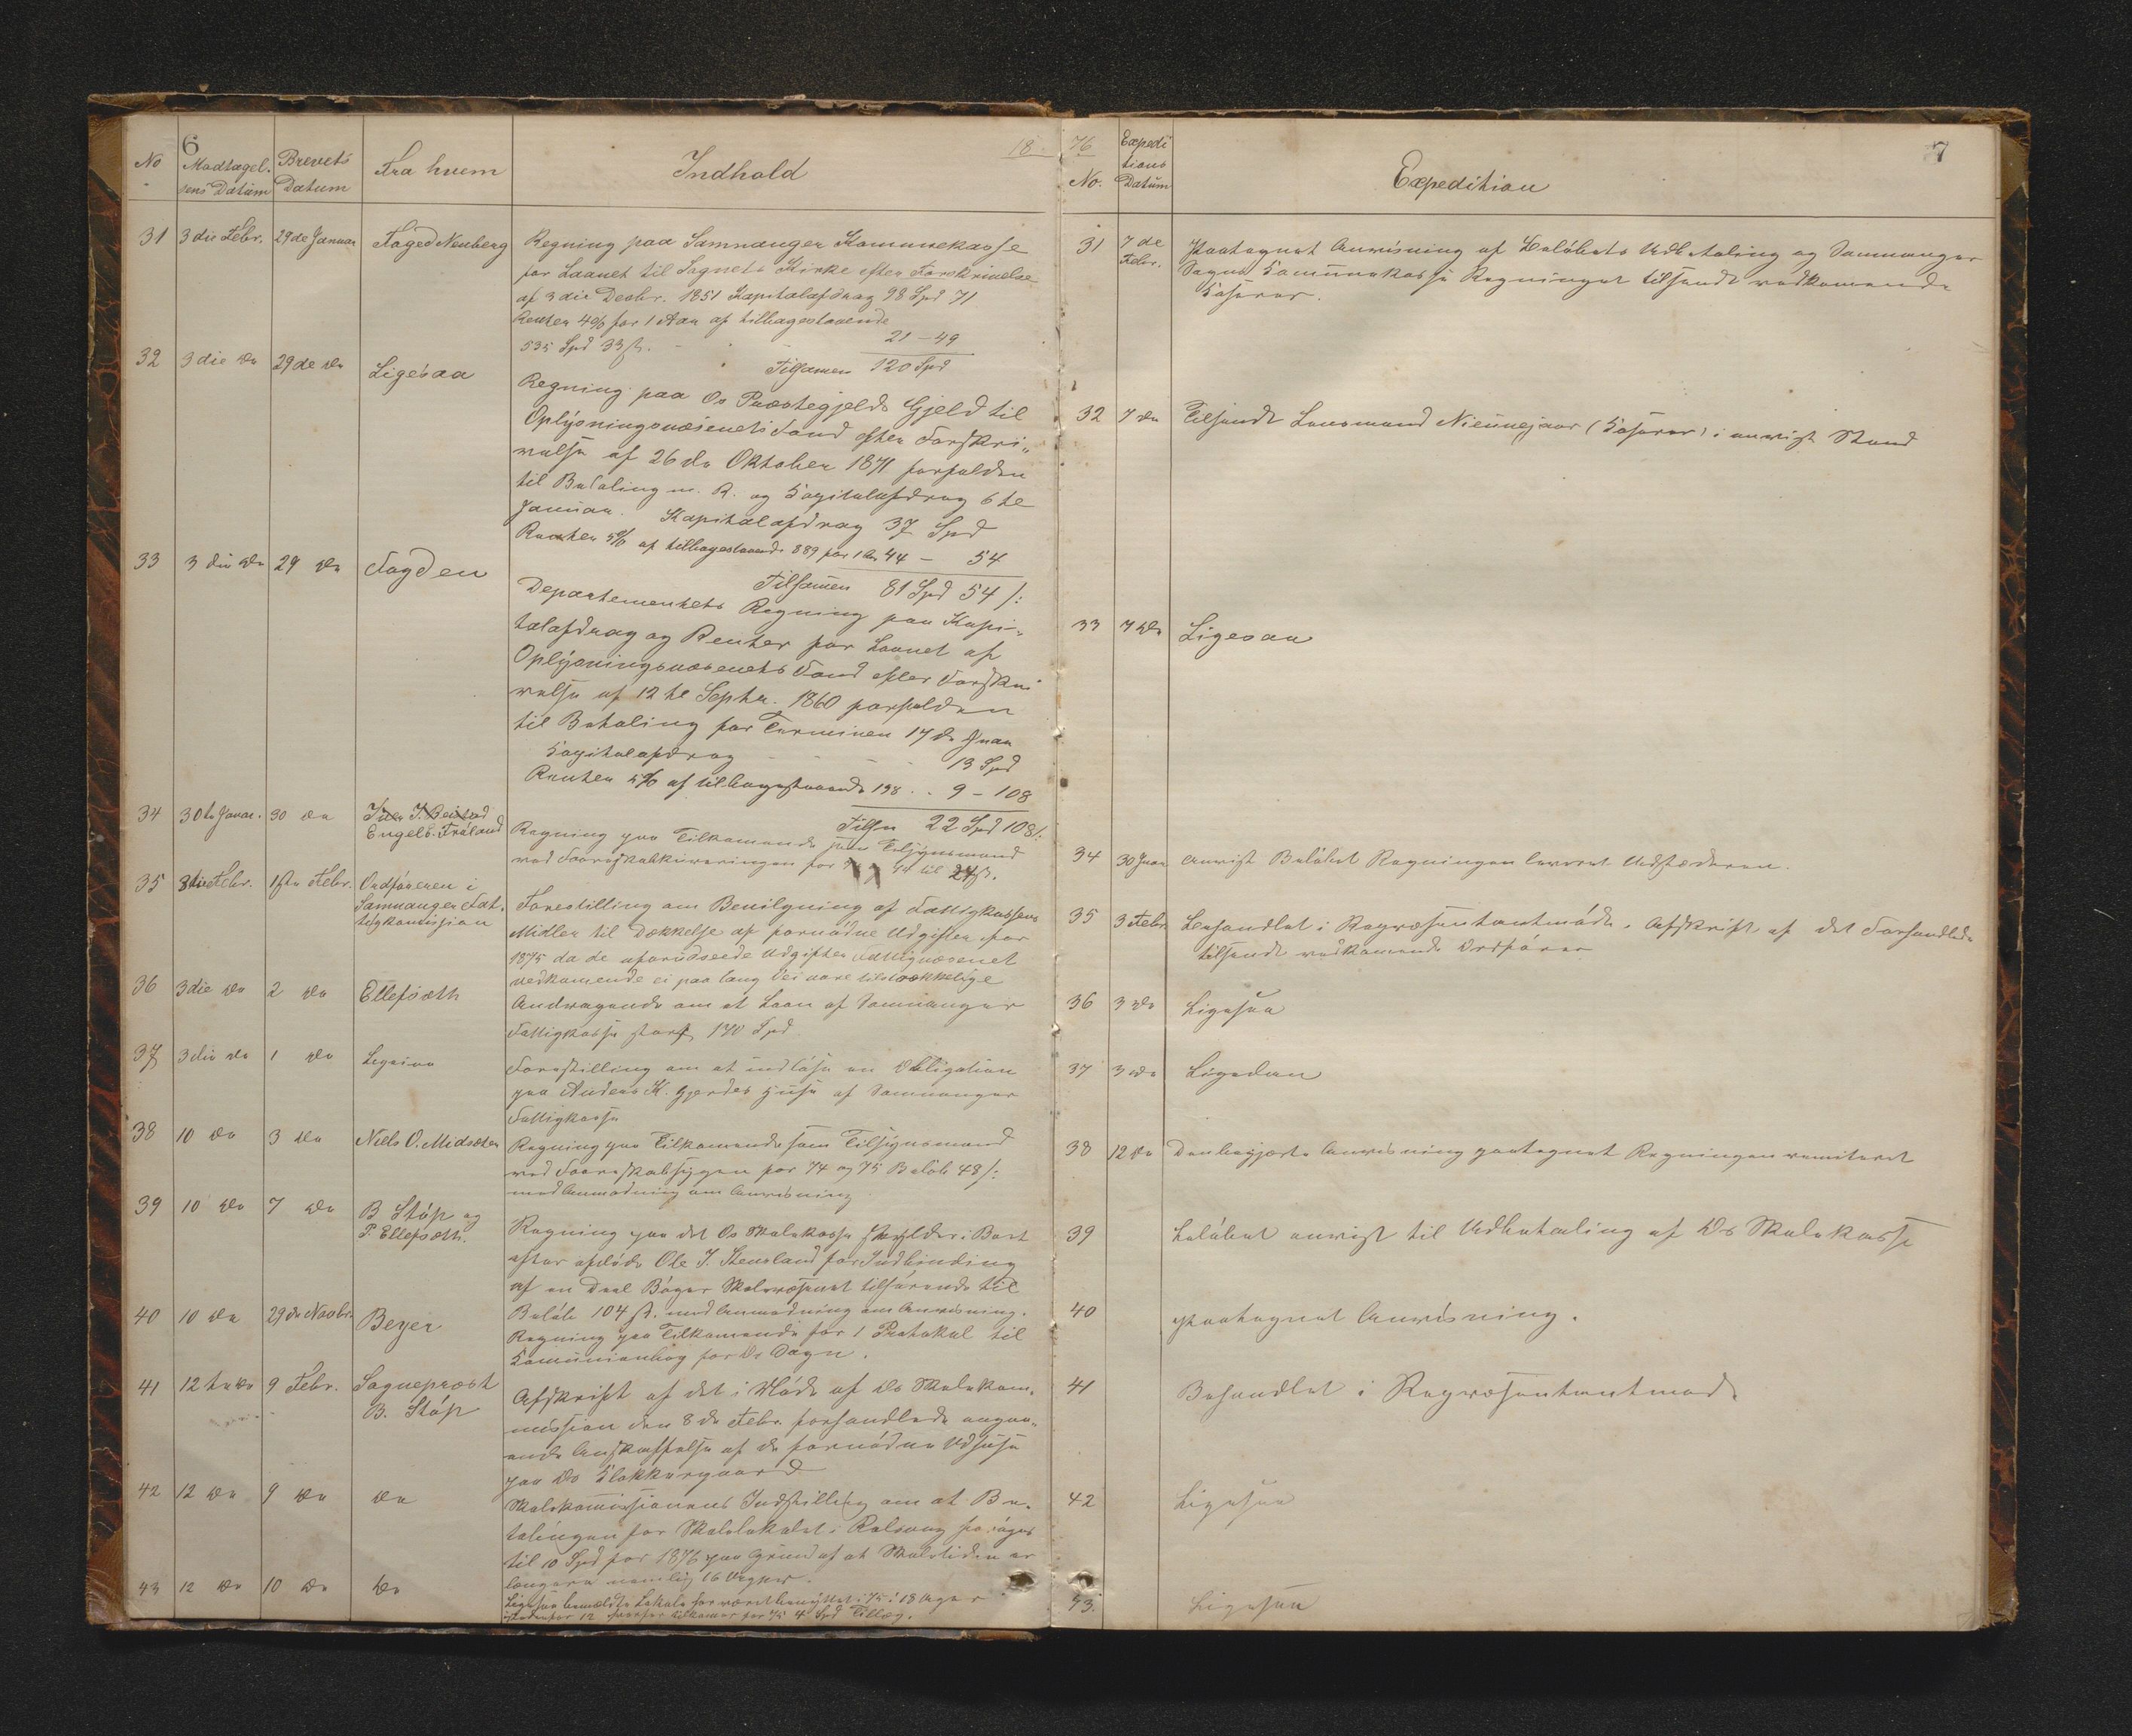 6
No
Modtagel.
sens Datum
Brevets
Datum
Fra hvem
Indhold
18
31
3die Febr.
29de Januar
Foged Nenberg
Regning paa Samnanger Kommunekasse
for Laanet til Sognets Kirke efter Forskrivelse
af 3die Decbr. 1851 Kapitalafdrag 98 Spd 71
Renter 4% for 1 Aar af tilbagestaaende
535 Spd 33 ß. - - 21 - 49
Tilsamen 120 Spd
32
3die Do
29de Do
Ligesaa
Regning paa Os Præstegjelds Gjeld til
Oplysningsvæsenets Fond efter Forskri„
velse af 26de Oktober 1871 forfalden
til Betaling m. R. og Kapitalafdrag 6te
Januar. Kapitalafdrag 37 Spd
Renter 5% af tilbagestaaende 889 for 1 Aar 44 - 54
Tilsamen 81 Spd 54 ß:
33
3die Do
29 Do
Fogden
Departementets Regning paa Kapi-
talafdrag og Renter for Laanet af
Oplysningsvæsenets Fond efter Forskri
velse af 12te Septbr. 1860 forfalden
til Betaling for Terminen 17de Jnar
Kapitalafdrag - - - 13 Spd
Renter 5% af tilbagestaaende 198 . . 9 - 108
Tilsn 22 Spd 108 ß:
34
30te Januar.
30 Do
Engelb. Fröland
Regning paa Tilkomende som Tilsynsmand
ved Faareskabkureringen for til 24 ß.
35
3die Febr.
1ste Febr.
Ordföreren i
Samnanger Fat.
tigkomision
Forestilling om Bevilgning af Fattigkassens
Midler til Dækkelse af fornødne Udgifter for
1875 da de uforudseede Udgifter Fattigvæsenet
vedkomende ei paa lang Vei vare tilstrækkelige
36
3die Do
2 Do
Ellefsæth
Andragende om et Laan af Samnanger
Fattigkasse stort 140 Spd
37
3die Do
1 Do
Ligesaa
Forestilling om at indløse en Obligation
paa Anders K. Gjerdes Huse af Samnanger
Fattigkasse
38
10 Do
3 Do
Niels O. Midsæter
Regning paa Tilkomende som Tilsynsmand
ved Faareskabsygen for 74 og 75 Beløb 48 ß:
med Anmodning om Anvisning
39
10 Do
7 Do
B Støp og
P. Ellefsæth.
Regning paa det Os Skolekasse skylder i Boet
efter afdøde Ole J. Stensland for Indbinding
af en Deel Bøger Skolevæsenet tilhørende til
Beløb 104 ß. med Anmodning om Anvisning.
40
10 Do
29de Novbr.
Beyer
Regning paa Tilkomende for 1 Protokol til
Komunionbog for Os Sogn.
41
12te Do
9 Febr.
Sognepræst
B. Støp
Afskrift af det i Møde af Os Skolekom„
mission den 8de Febr. forhandlede angaa„
ende Anskaffelse af de fornødne Udhuse
paa Os Klokkergaard
42
12 Do
9 Do
Do
Skolekommissionens Indstilling om at Be„
talingen for Skolelokalet i forøges
til 10 Spd for 1876 paa Grund af at Skoletiden er
længere nemlig 16 Uger.
43
12 Do
10 Do
Do
Ligesaa bemeldte Lokale har været benyttet i 75 i 18 Uger
istedenfor 12 hvorfor tilkomer for 75 4 Spd Tillæg.
76
7
No.
Expedi
tions
Datum
Expedition
31
7de
Febr.
Paategnet Anvisning af Beløbets Udbetaling og Samnanger
Sogns Komunekasse Regningen tilsendt vedkomende
Kaserer.
32
7 Do
Tilsendt Lensmand (Kaserer) i anvist Stand
33
7 Do
Ligesaa
34
30 Jnar
Anvist Beløbet Regningen leveret Udstederen.
35
3 Febr
Behandlet i Repræsentantmøde. Afskrift af det Forhandlede
tilsendt vedkomende Ordfører
36
3 Do
Ligesaa
37
3 Do
Ligedan
38
12 Do
Den begjærte Anvisning paategnet Regningen remiteret
39
Beløbet anvist til Udbetaling af Os Skolekasse
40
Paategnet Anvisning.
41
Behandlet i Repræsentantmøde
42
Ligesaa
43.
Ligesaa